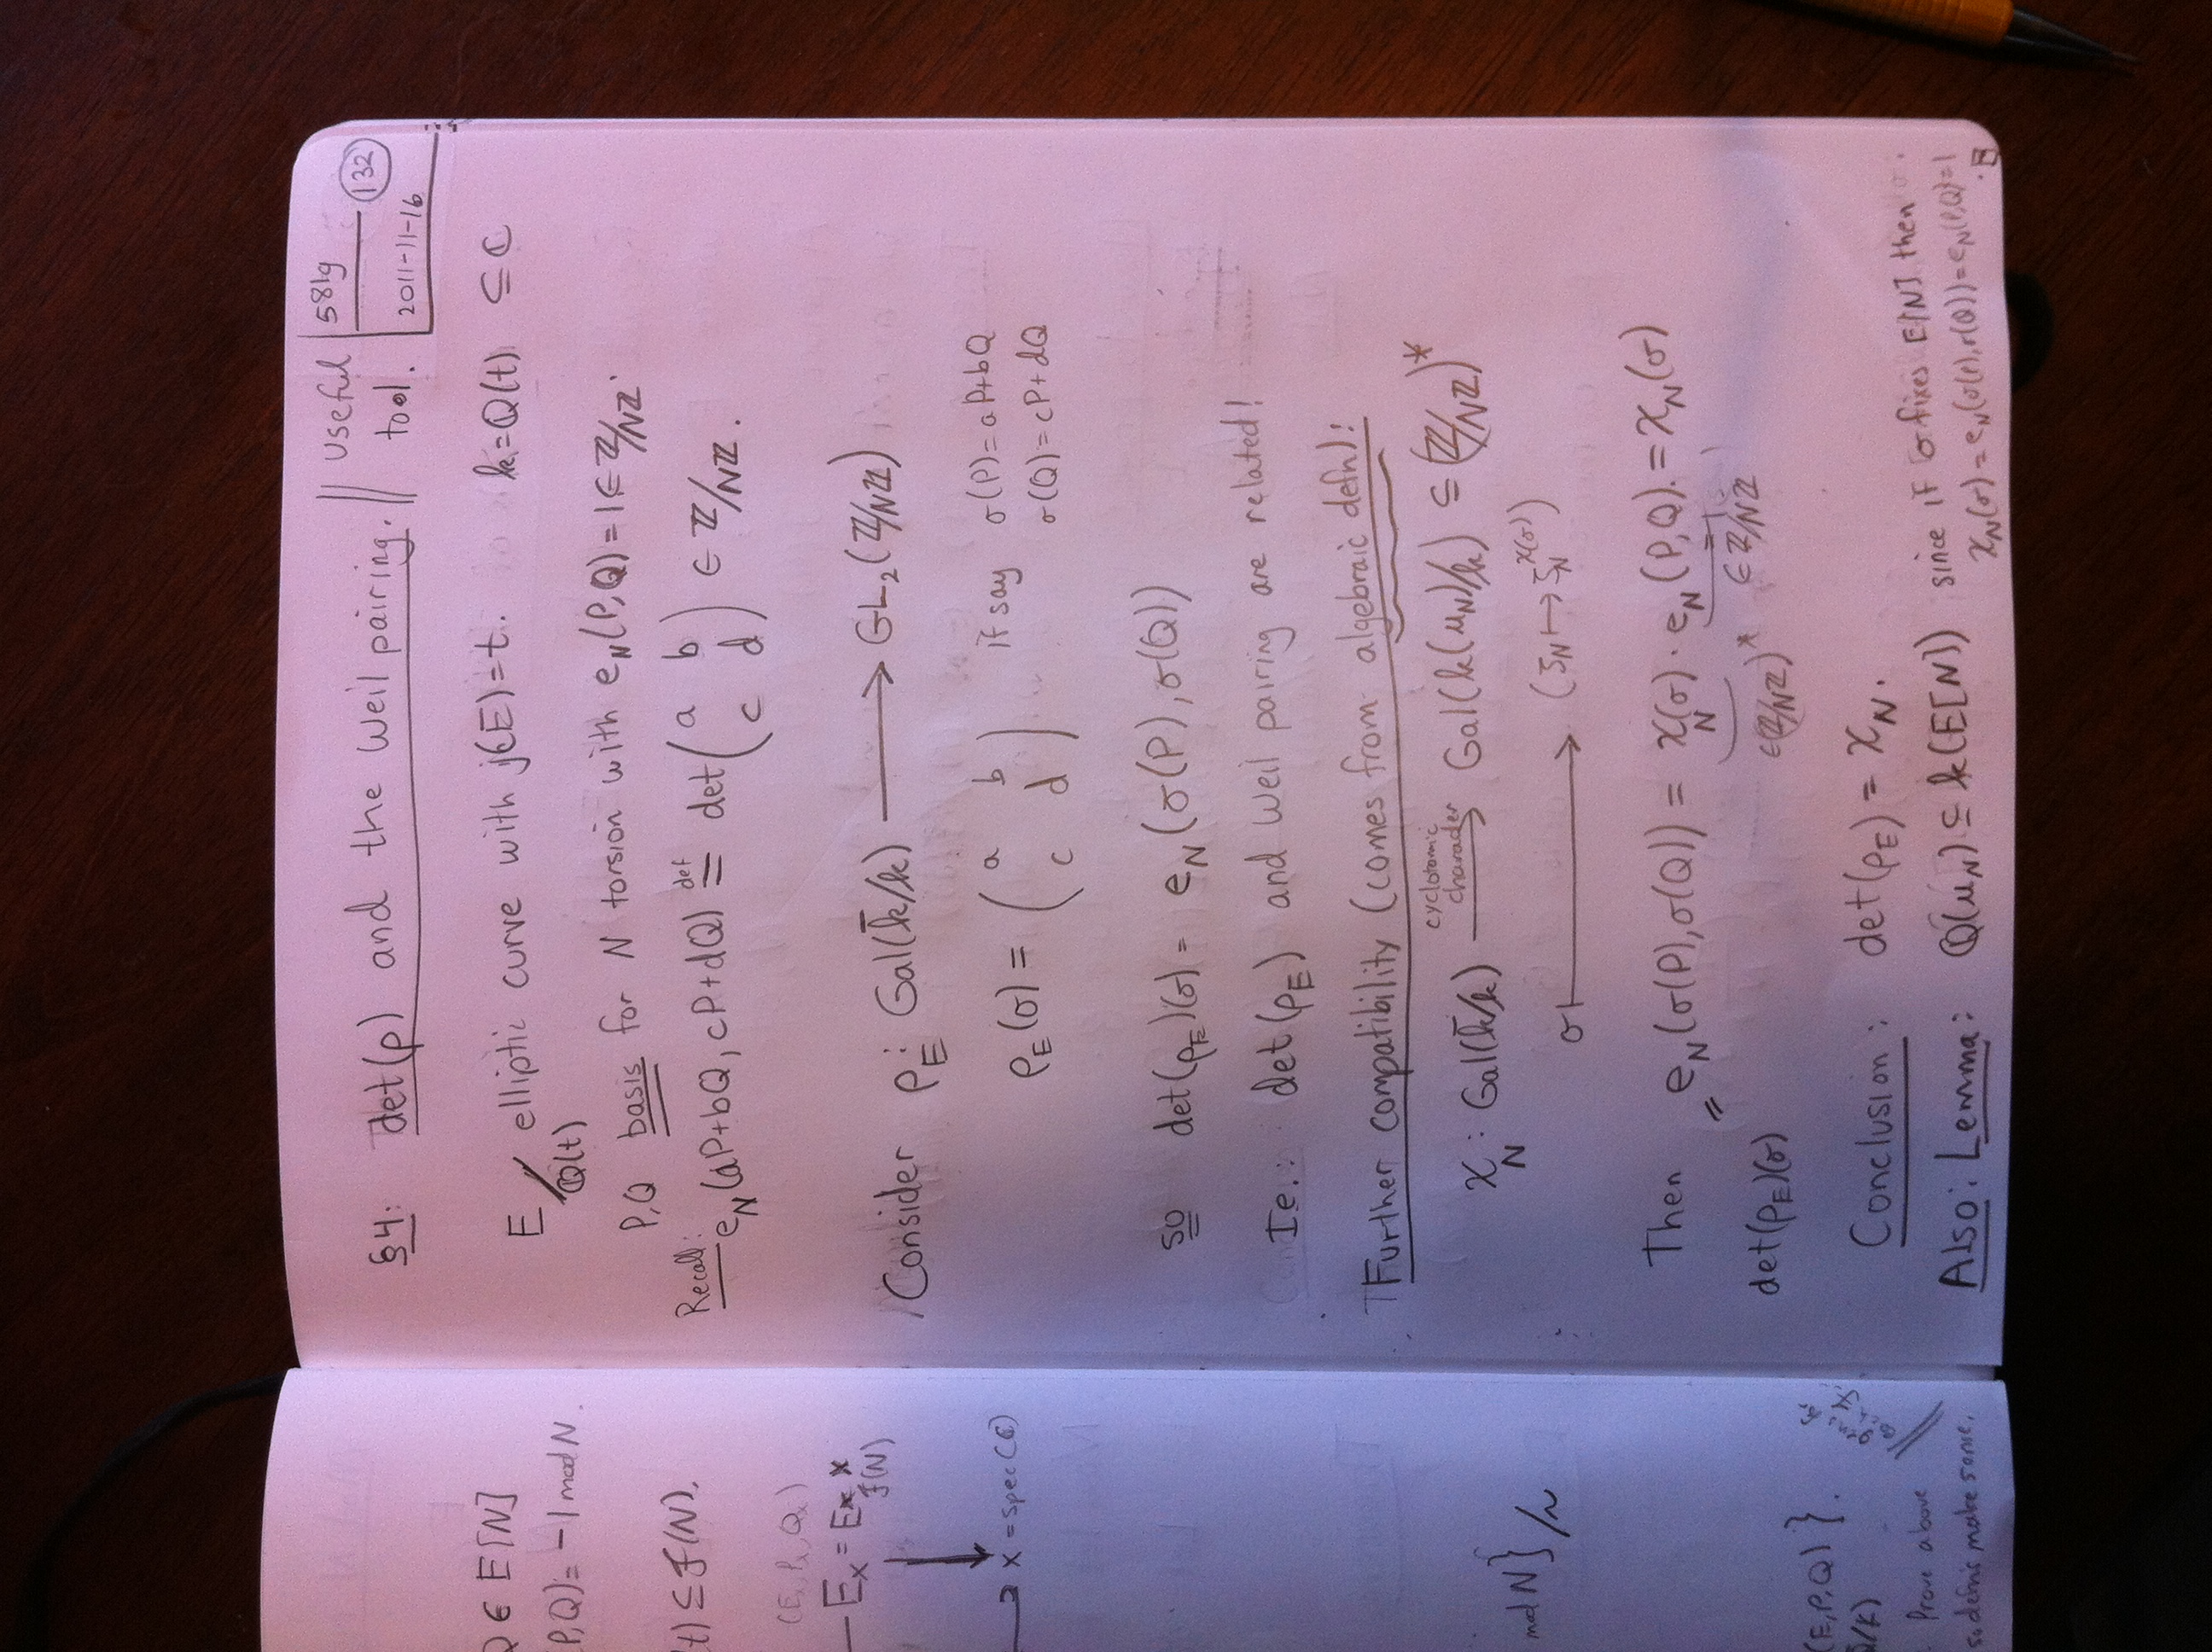 581g (132)
2011-11-16
§4: det(ρ) and the Weil pairing. || useful tool.
E/Q(t) elliptic curve with j(E)=t. k=Q(t) ⊆ ℂ
P,Q basis for N torsion with e_N(P,Q)=1∈ℤ/Nℤ.
Recall: e_N(aP+bQ, cP+dQ) =def det(a b c d) ∈ ℤ/Nℤ.
Consider ρ_E: Gal(k̄/k) ⟶ GL₂(ℤ/Nℤ)
ρ_E(σ) = (a b c d) if say σ(P)=aP+bQ
σ(Q)=cP+dQ
so det(ρ_E)(σ) = e_N(σ(P),σ(Q))
Ie.: det(ρ_E) and Weil pairing are related!
Further compatibility (comes from algebraic defn):
χ_N: Gal(k̄/k) ⟶ cyclotomic character Gal(k(μ_N)/k) ⊆ (ℤ/Nℤ)*
σ ⟼ (ζ_N ↦ ζ_N^χ(σ))
Then e_N(σ(P),σ(Q)) = χ_N(σ)·e_N(P,Q) = χ_N(σ)
=1
∈(ℤ/Nℤ)* ∈ℤ/Nℤ
=
det(ρ_E)(σ)
Conclusion: det(ρ_E) = χ_N.
Also: Lemma: Q(μ_N) ⊆ k(E[N]) since if σ fixes E[N] then
χ_N(σ) = e_N(σ(P),σ(Q)) = e_N(P,Q)=1
Q ∈ E[N]
P,Q)= -1 mod N.
t) ⊆ F(N).
(E, P, Qx)
E_x = E x
F(N)
x = spec(ℂ)
mod N}/~
(E,P,Q)}.
/k)
Prove above
so defn's make sense.